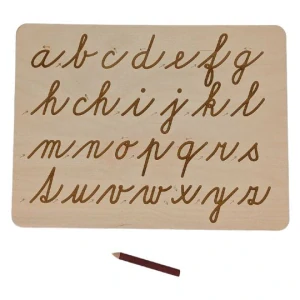 a b c d e f g
h ch i j k l
m n o p q r s
t u v w x y z